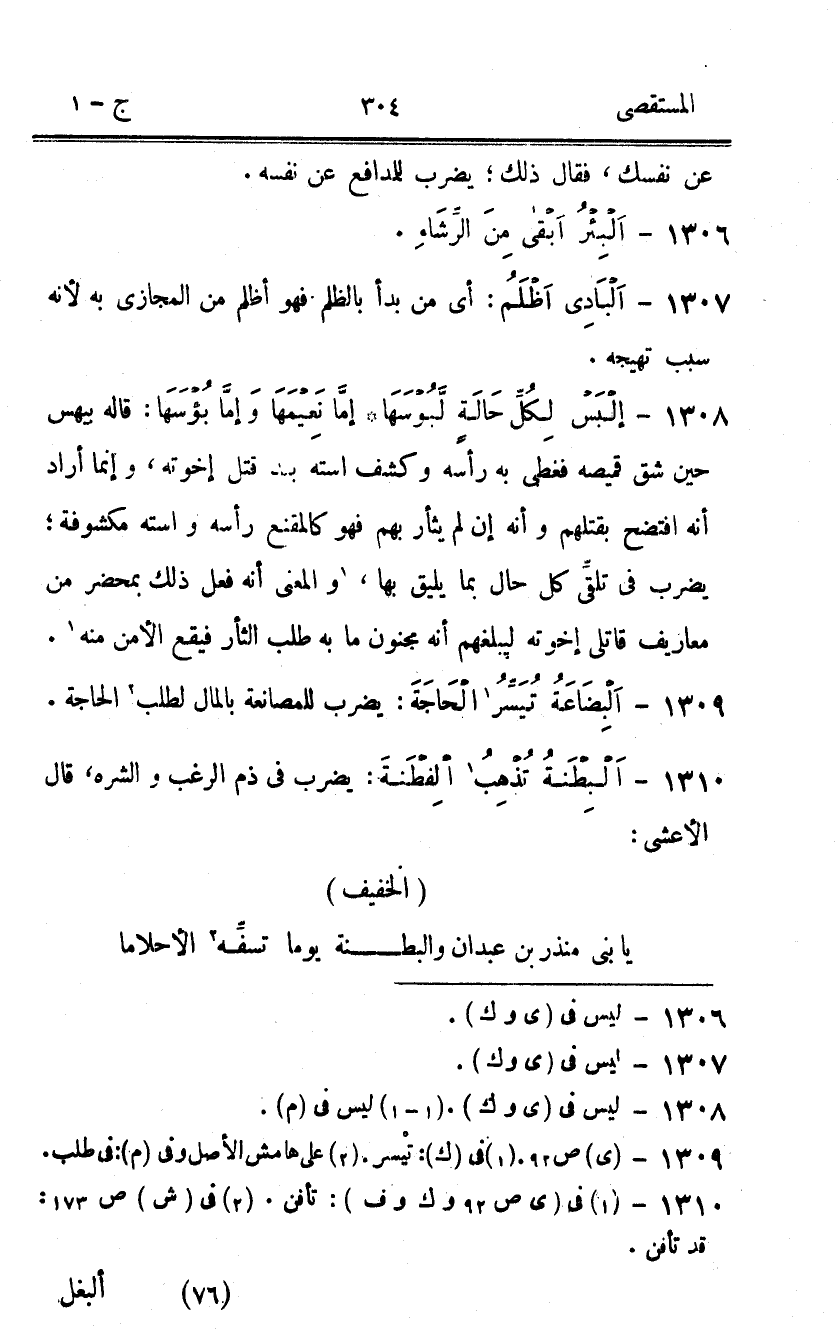 المستقصى ٣٠٤ ج – ١
عن نفسك ، فقال ذلك ؛ يضرب للدافع عن نفسه .
١٣٠٦ – اَلْبِئْرُ اَبْقٰى مِنَ الرِّشَاءِ .
١٣٠٧ – اَلْبَادِى اَظْلَمُ : أى من بدأ بالظلم فهو أظلم من المجازى به لأنه
سبب تهيجه .
١٣٠٨ – اِلْبَسْ لِكُلِّ حَالَةٍ لَّبُوْسَهَا * اِمَّا نَعِيْمَهَا وَ اِمَّا بُؤْسَهَا : قاله بيهس
حين شق قميصه فغطى به رأسه و كشف استه بعد قتل إخوته ، و إنما أراد
أنه افتضح بقتلهم و أنه إن لم يثأر بهم فهو كالمقنع رأسه و استه مكشوفة ؛
يضرب فى تلقِّى كل حال بما يليق بها ، ١و المعنى أنه فعل ذلك بمحضر من
معاريف قاتلى إخوته ليبلغهم أنه مجنون ما به طلب الثأر فيقع الأمن منه١ .
١٣٠٩ – اَلْبِضَاعَةُ تُيَسِّرُ١ الْحَاجَةَ : يضرب للمصانعة بالمال لطلب٢ الحاجة .
١٣١٠ – اَلْبِطْنَةُ تُذْهِبُ١ الْفِطْنَةَ : يضرب فى ذم الرغب و الشره، قال
الأعشى :
( الخفيف )
يا بنى منذر بن عبدان والبطـــــنة يوما تسفِّه٢ الأحلاما
١٣٠٦ – ليس فى (ى و ك) .
١٣٠٧ – ليس فى (ى وك) .
١٣٠٨ – ليس فى (ى و ك) . (١–١) ليس فى (م) .
١٣٠٩ – (ى) ص ٩٢. (١)فى (ك): تيْسر . (٢) على هامش الأصل وفى (م): فى طلب.
١٣١٠ – (١) فى ( ى ص ٩٢ و ك و ف ) : تأفن . (٢) فى ( ش ) ص ١٧٣ :
قد تأفن .
(٧٦) ألبغل